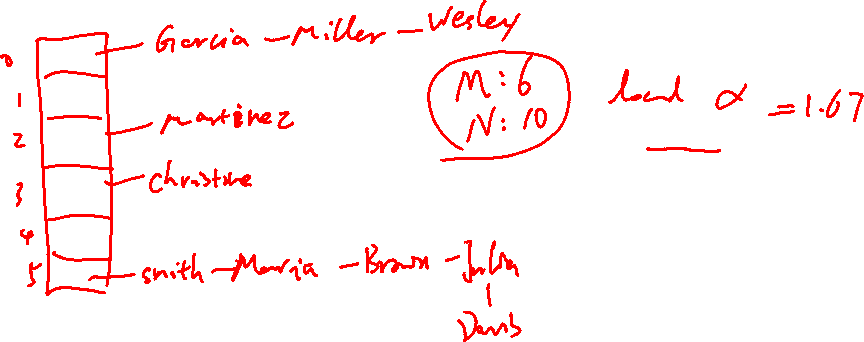 0 Garcia - Miller - Wesley
1
2 Martinez
3 Christine
4
5 Smith - Maria - Brown - Julia
Davis
M: 6
N: 10
load α = 1.67